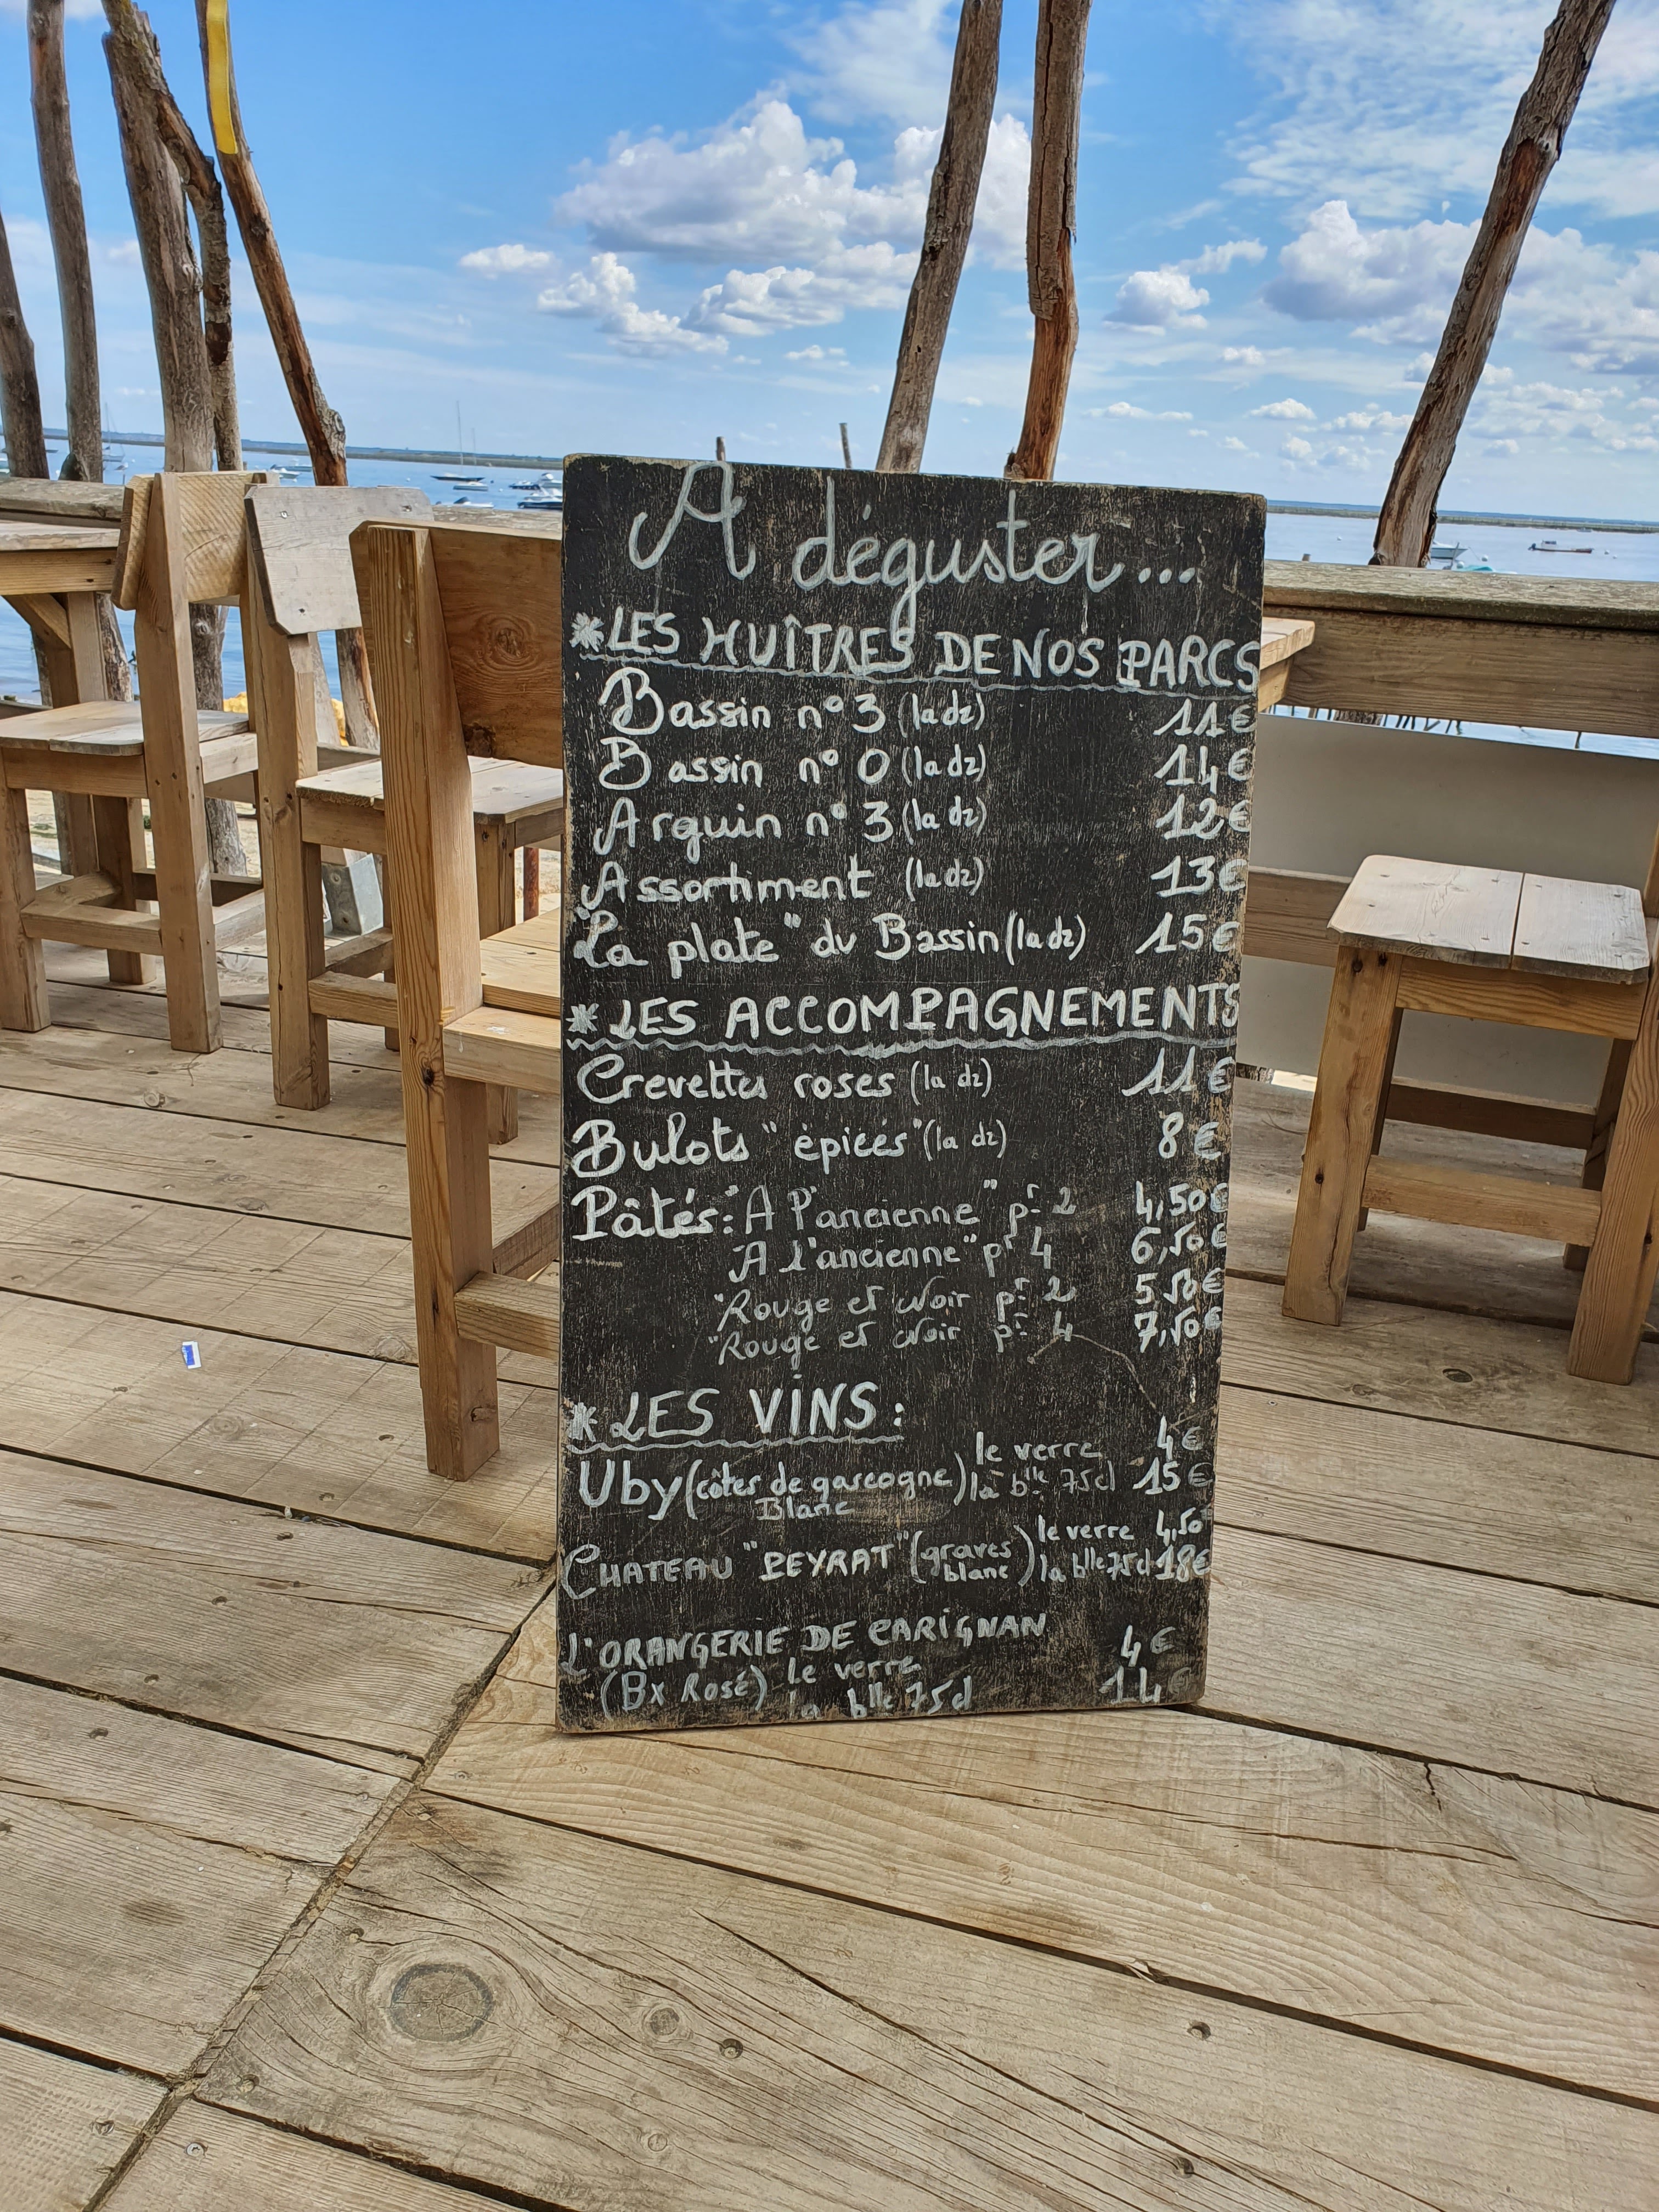 A déguster...
*LES HUÎTRES DE NOS PARCS
Bassin n°3 (la dz) 11€
Bassin n° 0 (la dz) 14€
Arguin n° 3 (la dz) 12€
Assortiment (la dz) 13€
"La plate" du Bassin (la dz) 15€
*LES ACCOMPAGNEMENTS
Crevettes roses (la dz) 11€
Bulots "épicés" (la dz) 8€
Pâtés: "A l'ancienne" pr 2 4,50€
"A l'ancienne" pr 4 6,50€
"Rouge et Noir pr 2 5,50€
"Rouge et Noir pr 4 7,50€
*LES VINS:
le verre 4€
Uby (côtes de gascogne) la blle 75cl 15€
Blanc
le verre 4,50€
CHATEAU "PEYRAT" (graves blanc) la blle 75cl 18€
L'ORANGERIE DE CARIGNAN
(Bx Rosé) le verre 4€
la blle 75cl 14€